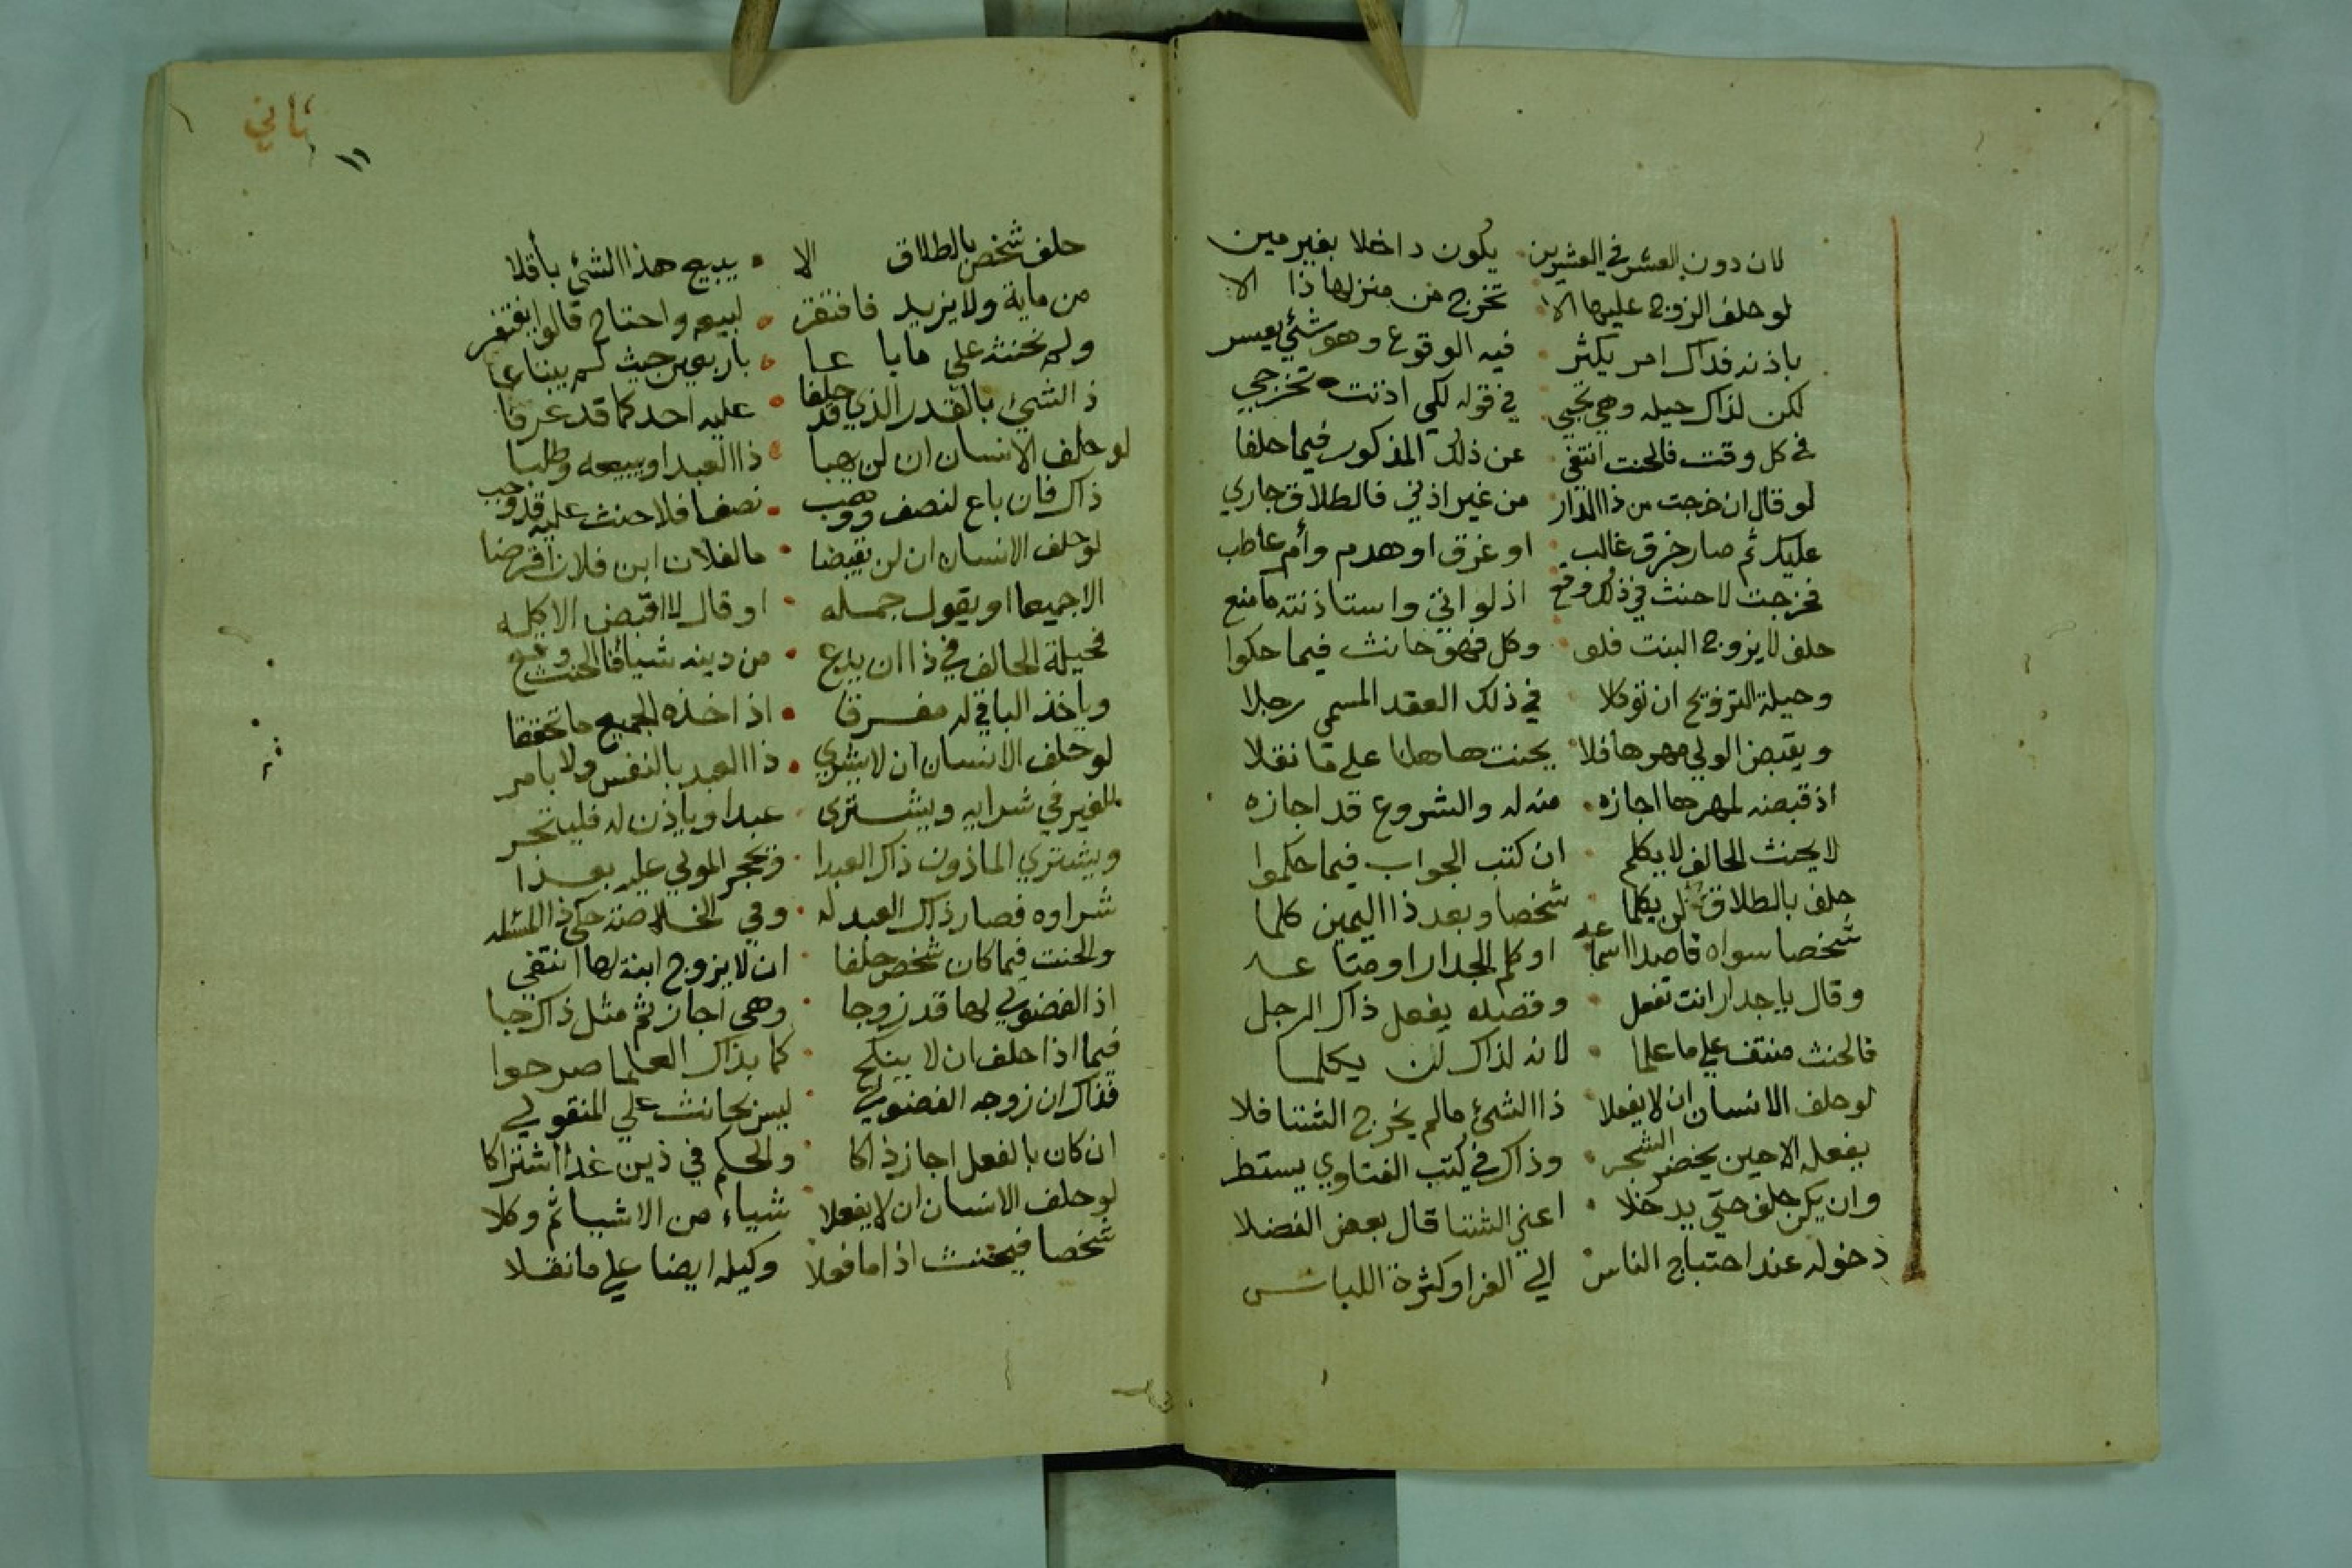 لان دون العشر في العشرين يكون داخلا بغير مين
لو حلف الزوج عليها الا تخرج من منزلها ذا الا
باذنه فذاك امر يكثر فيه الوقوع وهو شئ يعسر
لكن لذاك حيله وهي تجي في قوله لكي اذنت تخرجي
في كل وقت فالحنث انتفي عن ذلك المذكور فيما حلفا
لو قال ان خرجت من ذا الدار من غير اذني فالطلاق جاري
عليك ثم صار خرق غالب او غرق او هدم وأم عاطب
فخرجت لا حنث في ذلك وقع اذ لو اتي واستاذنته ما منع
حلف لا يزوج البنت فلو وكل فهو حانث فيما حكوا
وحيلة التزويج ان توكلا في ذلك العقد المسمي رجلا
ويقبض الولي مهرها فلا يحنث هاهنا علي ما نقلا
اذ قبضه لمهرها اجازه منه له والشروع قد اجازه
لا يحنث الحالف لا يكلم ان كتب الجواب فيما حكموا
حلف بالطلاق لن يكلما شخصا وبعد ذا اليمين كلما
شخصا سواه قاصدا اسماعه او كلم الجدار او متاعه
وقال يا جدار انت تفعل وقصده يفعل ذاك الرجل
فالحنث منتف علي ما علما لانه لذاك لن يكلما
لو حلف الانسان ان لا يفعلا ذا الشئ مالم يخرج الشتا فلا
يفعله الا حين يخضر الشجر وذاك في كتب الفتاوي يستطر
وان يكن حلف حتي يدخلا اعني الشتا قال بعض الفضلا
دخوله عند احتياج الناس الي الفرا وكثرة اللباس
ثاني
١١
حلف شخص بالطلاق الا يبيع هذا الشئ بأقلا
من ماية ولا يزيد فافتقر لبيعه واحتاج قالوا يغتفر
ولم نحنثه علي ما باعا باربعين حيث لم يبتاعا
ذا الشئ بالقدر الذي قد حلفا عليه احد كما قد عرفا
لو حلف الانسان ان لن يهبا ذا العبد او يبيعه وطلبا
ذاك فان باع لنصف ووهب نصفا فلا حنث عليه قد وجب
لو حلف الانسان ان لن يقبضا ما لفلان ابن فلان اقرضا
الا جميعا او يقول جمله او قال لا اقبض الا كله
فحيلة الحالف في ذا ان يدع من دينه شيا فالحنث وقع
وياخذ الباقي له مفرقا اذ اخذه الجميع ما تحققا
لو حلف الانسان ان لا يشتري ذا العبد بالنفس ولا بامر
للغير في شرايه ويشتري عبدا وياذن له فليتجر
ويشتري الماذون ذاك العبدا ويحجر المولي عليه بعد ذا
شراوه فصار ذاك العبد له وفي الخلاصة حكي ذا المسئله
والحنث فيما كان شخص حلفا ان لا يزوج ابنة لها انتفي
اذ الفضولي لها قد زوجا وهي اجاز ثم مثل ذاك جا
فيما اذا حلف ان لا ينكح كما بذاك العلما صرحوا
فذاك ان زوجه الفضولي ليس بحانث علي المنقول
ان كان بالفعل اجاز ذاكا والحكم في ذين غدا اشتراكا
لو حلف الانسان ان لا يفعلا شياء من الاشيا ثم وكلا
شخصا فيحنث اذا ما فعلا وكيله ايضا علي ما نقلا